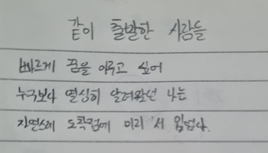 같이 출발한 사람들
빠르게 꿈을 이루고 싶어
누구보다 열심히 달려왔던 나는
도착점에 미리 서 있었다.